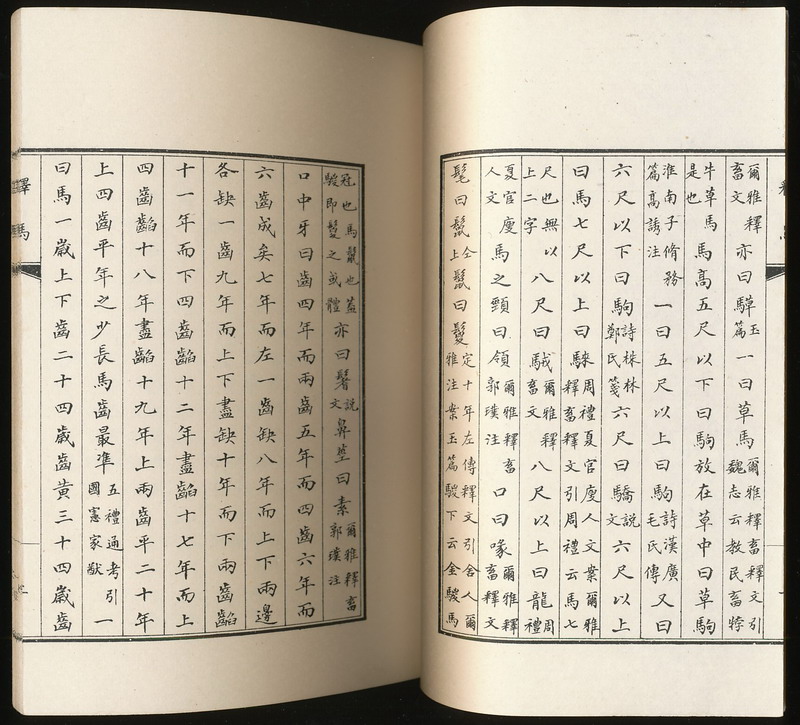 爾雅釋畜文亦曰騲玉篇一曰草馬爾雅釋畜釋文引魏志云教民畜牸
牛草馬是也馬高五尺以下曰駒放在草中曰草駒
淮南子脩務篇高誘注一曰五尺以上曰駒詩漢廣毛氏傳又曰
六尺以下曰駒詩株林鄭氏箋六尺曰驕說文六尺以上
曰馬七尺以上曰騋周禮夏官廋人文案爾雅釋畜釋文引周禮云馬七
尺也無以上二字八尺曰䮙爾雅釋畜文八尺以上曰龍周禮
夏官廋人文馬之頸曰領爾雅釋畜郭璞注口曰喙爾雅釋畜釋文
髦曰鬣仝上鬣曰鬉定十年左傳釋文引舍人爾雅注案玉篇騣下云金騣馬
冠也馬鬣也蓋騣即鬉之或體亦曰鬐說文鼻莖曰素爾雅釋畜郭璞注
口中牙曰齒四年而兩齒五年而四齒六年而
六齒成矣七年而左一齒缺八年而上下兩邊
各缺一齒九年而上下盡缺十年而下兩齒齨
十一年而下四齒齨十二年盡齨十七年而上
四齒齨十八年盡齨十九年上兩齒平二十年
上四齒平年之少長馬齒最準五禮通考引一國憲家猷
曰馬一歲上下齒二十四歲齒黄三十四歲齒
釋馬